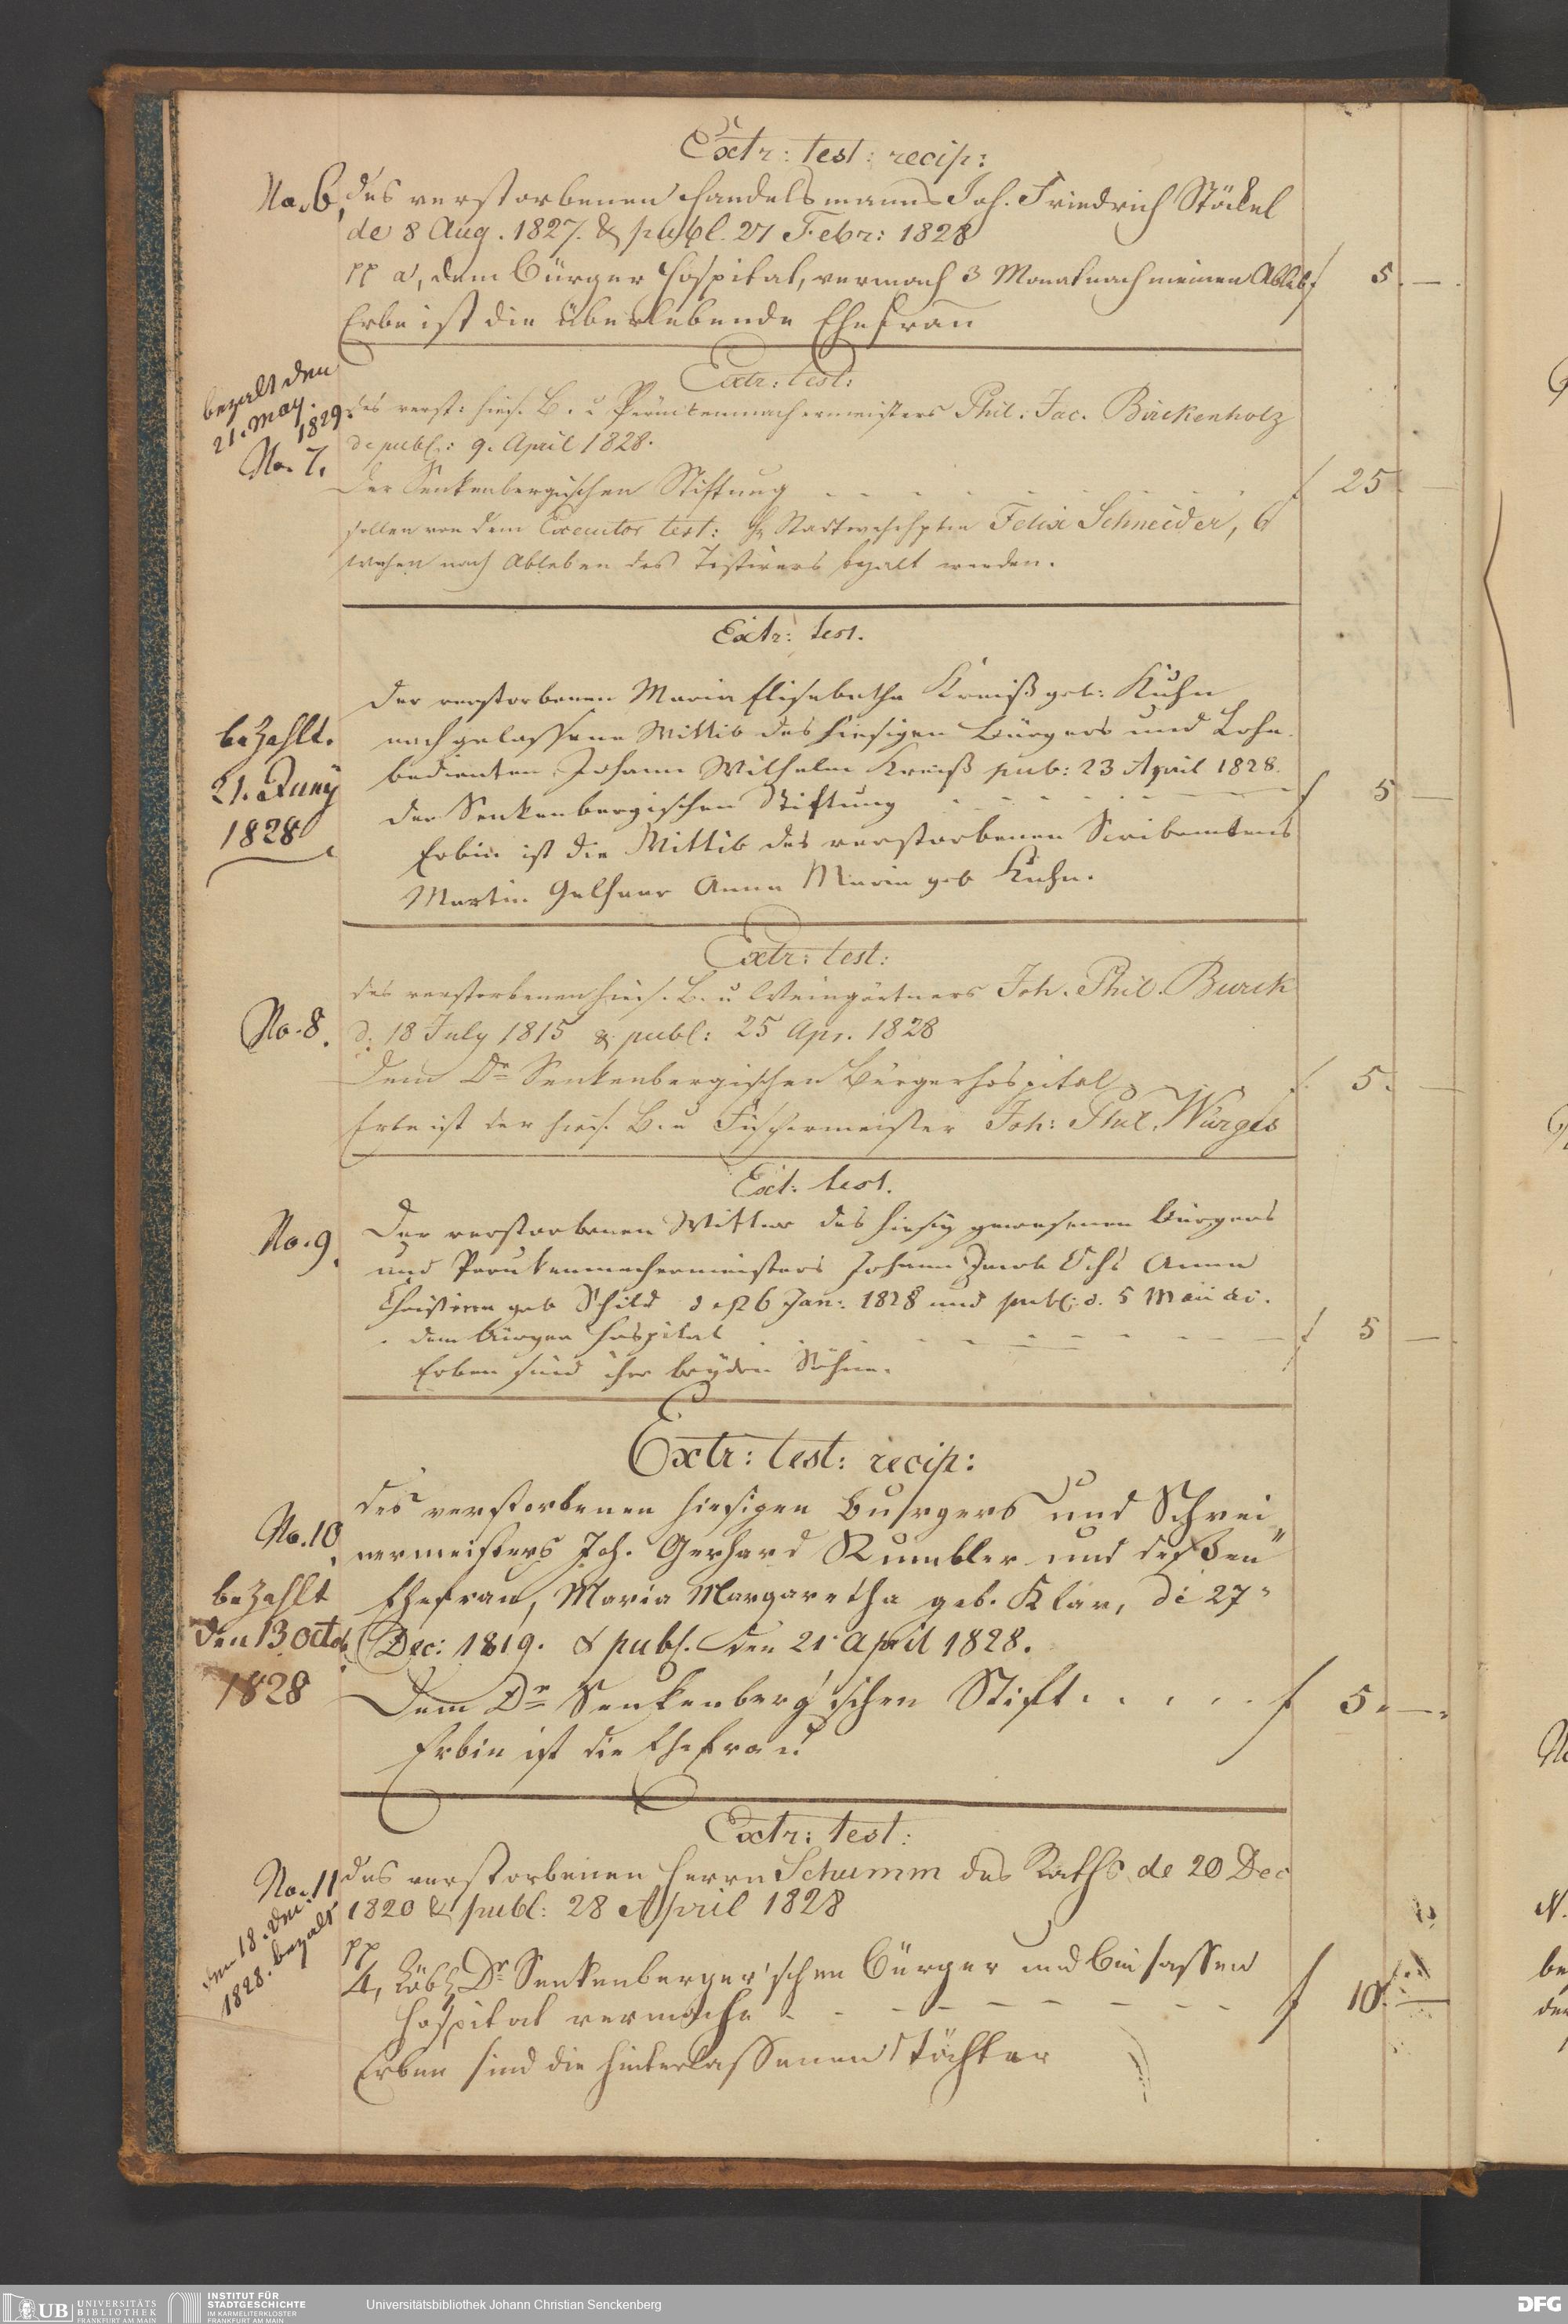 Extr: test: recip:
No. 6. des verstorbenen Handelsmanns Joh. Friedrich Stöckel
de 8 Aug. 1827. & publ. 27 Febr: 1828
pp a, dem Bürger Hospital, vermach 3 Monat nach meinen Ableb f 5. —.
Erbe ist die überlebende Ehefrau
Extr: test:
bezalt den
21. May.
1829.
No. 7.
des verst: hies. B. u Perückenmachermeisters Phil. Jac. Birckenholz
de publ: 9. April 1828.
Der Senkenbergischen Stiftung f 25. —
sollen von dem Executor test: Felix Schneider, 6
wochen nach Ableben des Testirers bezalt werden.
Extr: test.
der verstorbenen Maria Elisabetha Kreuß geb: Kuhn
nachgelassene Wittib des hiesigen Bürgers und Lohn
bedienten Johann Wilhelm Kreuß pub: 23 April 1828.
der Senkenbergischen Stiftung f 5 —
Erbin ist die Wittib des verstorbenen Scribenten
Martin Gelhaar Anna Maria geb Kuhn.
bezahlt.
21. Juny
1828
Extr: test:
No. 8.
des verstorbenen hies. B. u Weingärtners Joh. Phil. Burck
d: 18 July 1815 & publ: 25 Apr. 1828
Dem Dr Senkenbergischen Bürgerhospital f. 5. —
Erbe ist der hies. B. u Fischermeister Joh: Phil. Würges
Ext: test.
No. 9.
Der verstorbenen Wittwe des hiesig gewesenen Bürgers
und Perukenmachermeisters Johann Jacob Ochs Anna
Christina geb Schild 26 Jan: 1828 und publ: d. 5 Maii
dem Bürger Hospital f 5 —
Erben sind ihre beyden Söhne.
Extr: test: recip:
No. 10.
des verstorbenen hiesigen Burgers und Schrei
nermeisters Joh. Gerhard Rumbler und deßen
Ehefrau, Maria Margaretha geb. Klar, de 27
Dec: 1819. & publ. den 21. April 1828.
Dem Dr Senkenberg'ischen Stift . . . . . f 5. —.
Erbin ist die Ehefrau
bezahlt
den 13 Octob.
1828
Extr: test:
No. 11
den 18. Dec.
1828. bezalt
des verstorbenen Herrn Schumm des Raths de 20 Dec
1820 & publ: 28 April 1828
pp
4, Löbl Dr Senkenberger'schen Bürger und Beisassen
Hospital vermache f 10. —
Erben sind die hinterlassenen Töchter
UB UNIVERSITÄTS
BIBLIOTHEK
FRANKFURT AM MAIN
INSTITUT FÜR
STADTGESCHICHTE
IM KARMELITERKLOSTER
FRANKFURT AM MAIN
Universitätsbibliothek Johann Christian Senckenberg
DFG